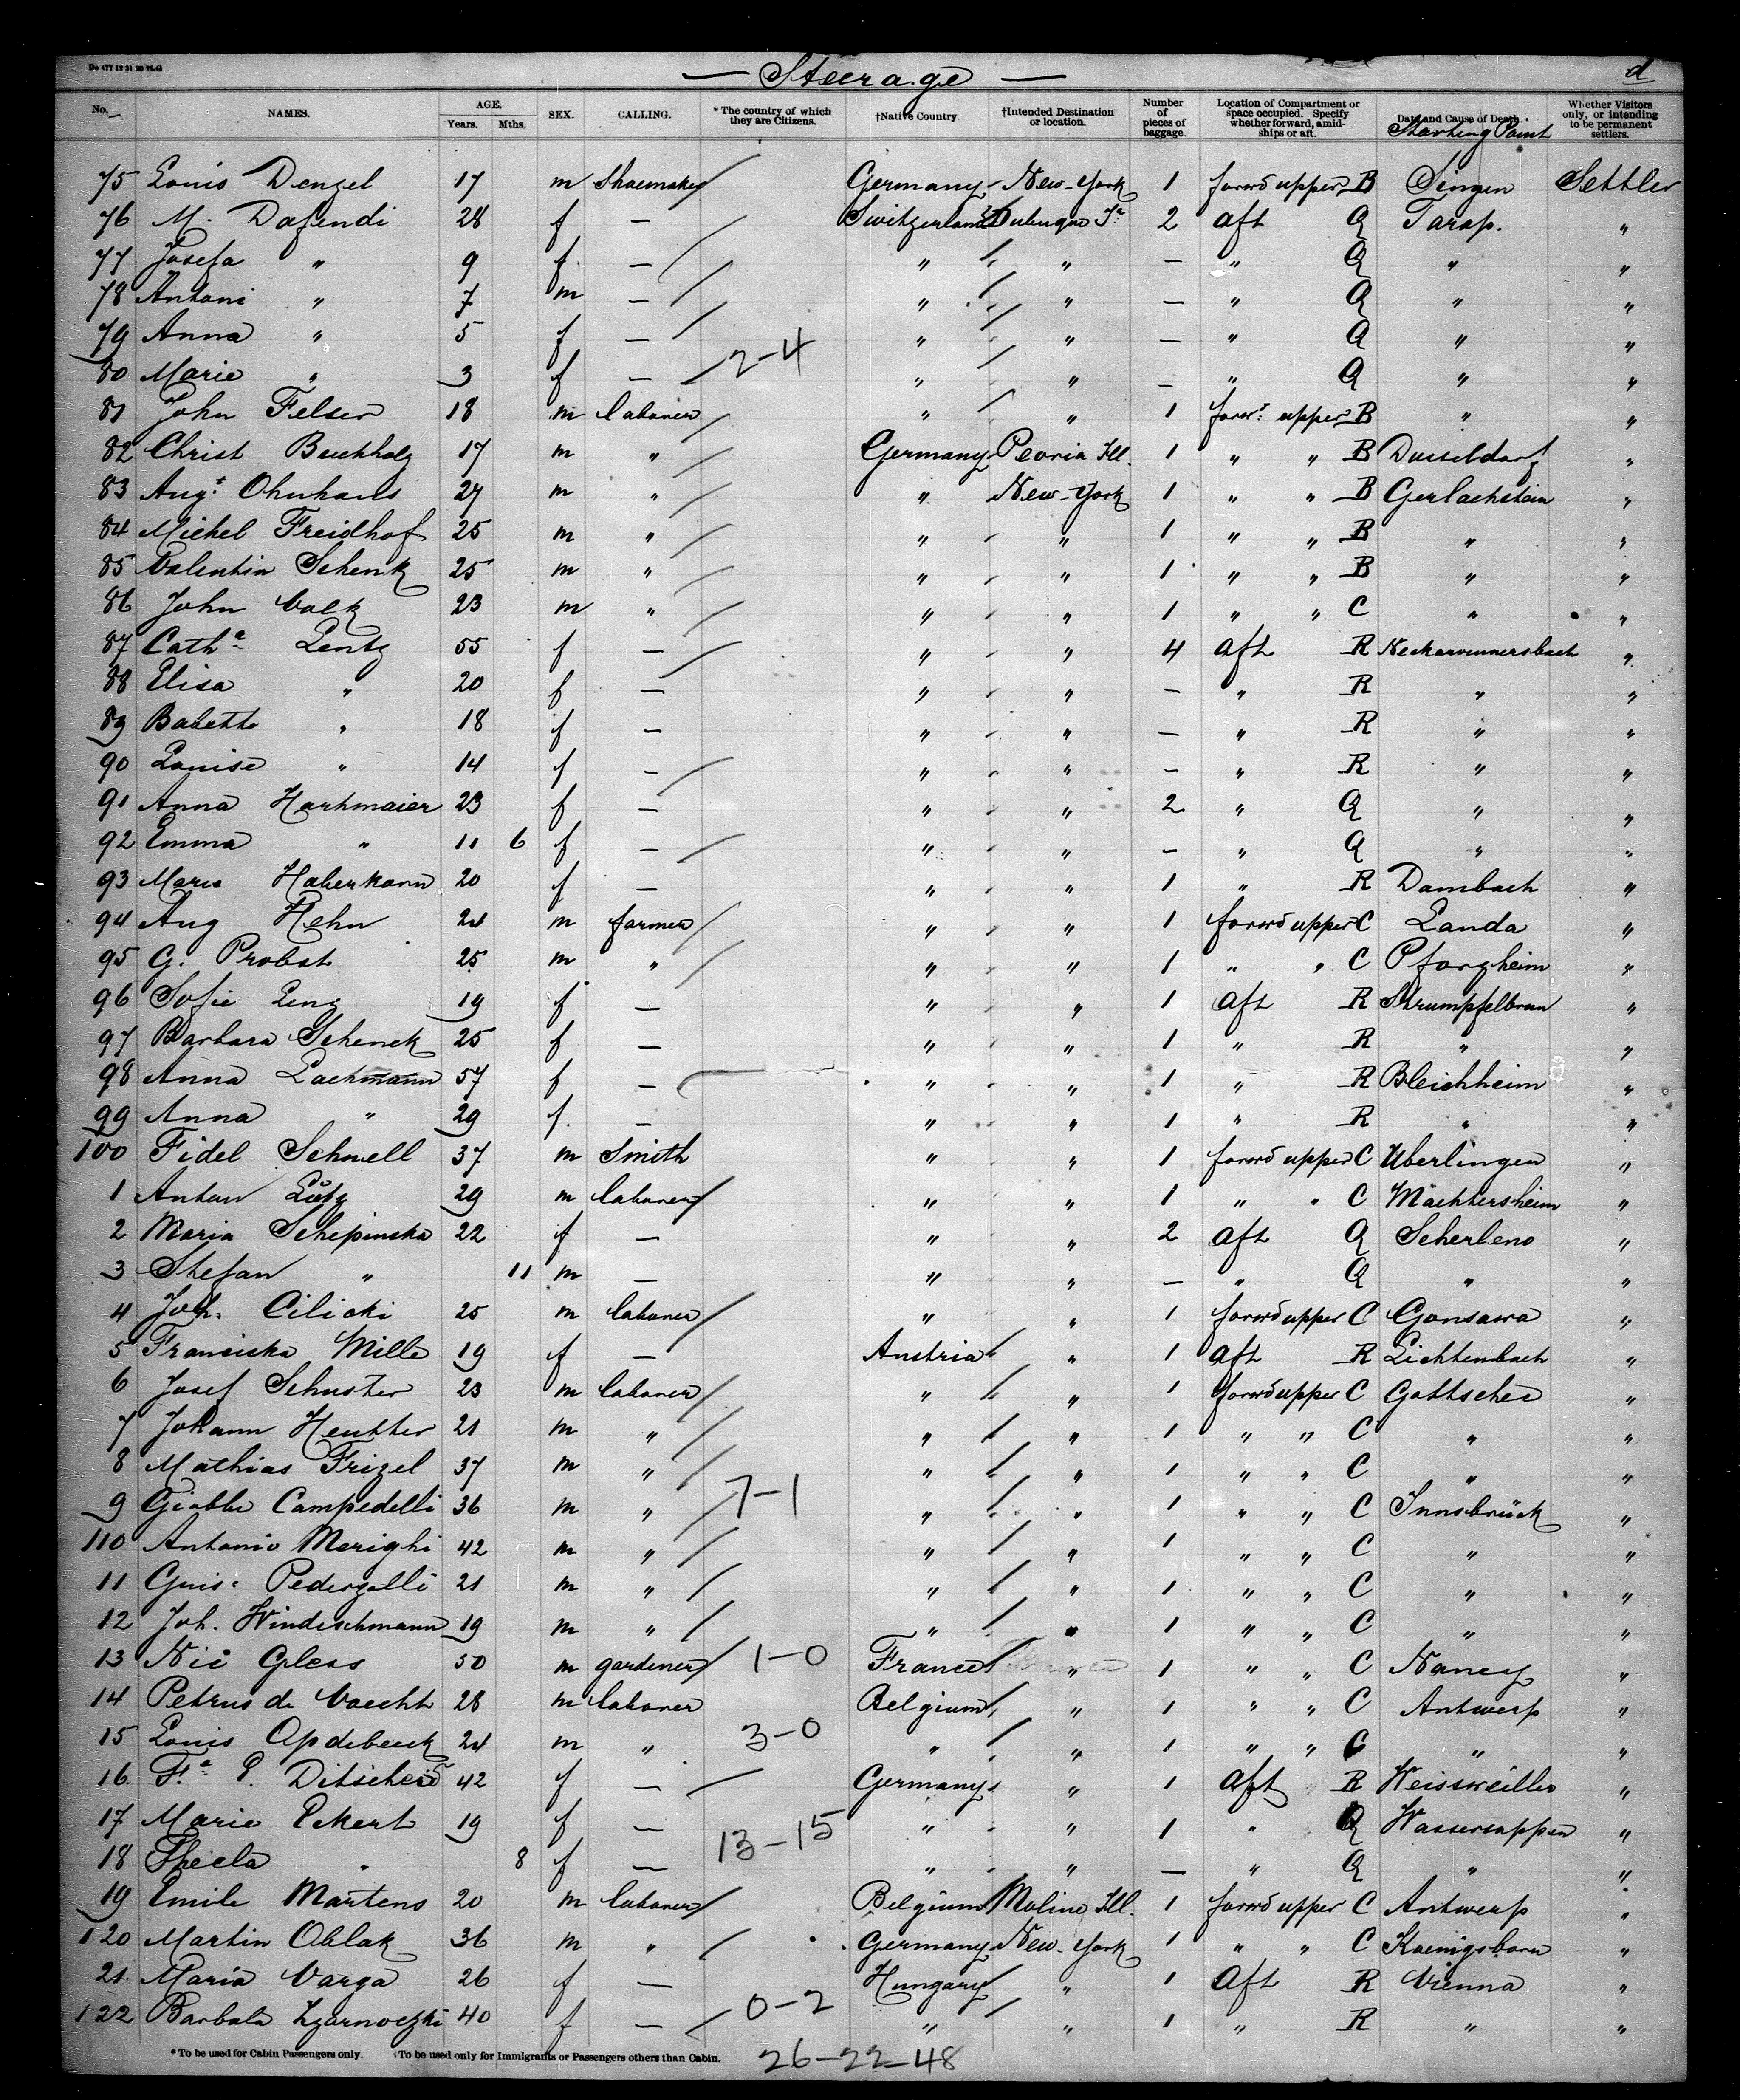 — Steerage —
d
No. NAMES. AGE. Years. Mths. SEX. CALLING. * The country of which they are Citizens. †Native Country. †Intended Destination or location. Number of pieces of baggage. Location of Compartment or space occupied. Specify whether forward, amidships or aft. Date and Cause of Death. Starting Point Whether Visitors only, or intending to be permanent settlers.
75 Louis Denzel 17 m Shoemaker Germany New-York 1 forwd upper B Singen Settler
76 M. Dafendi 28 f — Switzerland Dubuque Ia 2 aft Q Tarasp. "
77 Josefa " 9 f — " " — " Q " "
78 Antoni " 7 m — " " — " Q " "
79 Anna " 5 f — " " — " Q " "
80 Marie " 3 f — 2-4 " " — " Q " "
81 John Felser 18 m laborer " " 1 forwd upper B " "
82 Christ Buchholz 17 m " Germany Peoria Ill. 1 " " B Dusseldorf "
83 Augt Ohnhaus 27 m " " New-York 1 " " B Gerlachstein "
84 Michel Freidhof 25 m " " " 1 " " B " "
85 Valentin Schenk 25 m " " " 1 " " B " "
86 John Volk 23 m " " " 1 " " C " "
87 Catha Lentz 55 f — " " 4 aft R Neckarwimmersbach "
88 Elisa " 20 f — " " — " R " "
89 Babette " 18 f — " " — " R " "
90 Louise " 14 f — " " — " R " "
91 Anna Hartmaier 23 f — " " 2 " Q " "
92 Emma " 11 6 f — " " — " Q " "
93 Marie Haberkorn 20 f — " " 1 " R Dambach "
94 Aug Hehn 24 m farmer " " 1 forwd upper C Landa "
95 G. Probst 25 m " " " 1 " " C Pforzheim "
96 Sofie Lenz 19 f — " " 1 aft R Strumpfelbrun "
97 Barbara Schenck 25 f — " " 1 " R " "
98 Anna Lachmann 57 f — " " 1 " R Bleichheim "
99 Anna " 29 f — " " 1 " R " "
100 Fidel Schnell 37 m Smith " " 1 forwd upper C Uberlingen "
1 Anton Lutz 29 m laborer " " 1 " " C Machtersheim "
2 Maria Schepinska 22 f — " " 2 aft Q Scherleno "
3 Stefan " 11 m — " " — " Q " "
4 Joh. Cilicki 25 m laborer " " 1 forwd upper C Gonsawa "
5 Franciska Mille 19 f — Austria " 1 aft R Lichtenbach "
6 Josef Schuster 23 m laborer " " 1 forwd upper C Gottschee "
7 Johann Heutter 21 m " " " 1 " " C " "
8 Mathias Frizel 37 m " " " 1 " " C " "
9 Giobbe Campedelli 36 m " 7-1 " " 1 " " C Innsbrück "
110 Antonio Merighi 42 m " " " 1 " " C " "
11 Guis. Pederzolli 21 m " " " 1 " " C " "
12 Joh. Windischmann 19 m " " " 1 " " C " "
13 Nic Gless 50 m gardener 1-0 France " 1 " " C Nancy "
14 Petrus de Vaecht 28 m laborer Belgium " 1 " " C Antwerp "
15 Louis Opdebeeck 24 m " 3-0 " " 1 " " C " "
16 Fa P. Ditscheid 42 f — Germany " 1 aft R Weissweiller "
17 Marie Eckert 19 f — 13-15 " " 1 " Q Wassersuppen "
18 Thecla " 8 f — " " — " Q " "
19 Emile Martens 20 m laborer Belgium Moline Ill. 1 forwd upper C Antwerp "
120 Martin Oblak 36 m " Germany New-York 1 " " C Koenigsborn "
21 Maria Varga 26 f — Hungary " 1 aft R Vienna "
122 Barbala Lzarnoczki 40 f — 0-2 " " 1 " R " "
* To be used for Cabin Passengers only. †To be used only for Immigrants or Passengers others than Cabin. 26-22-48